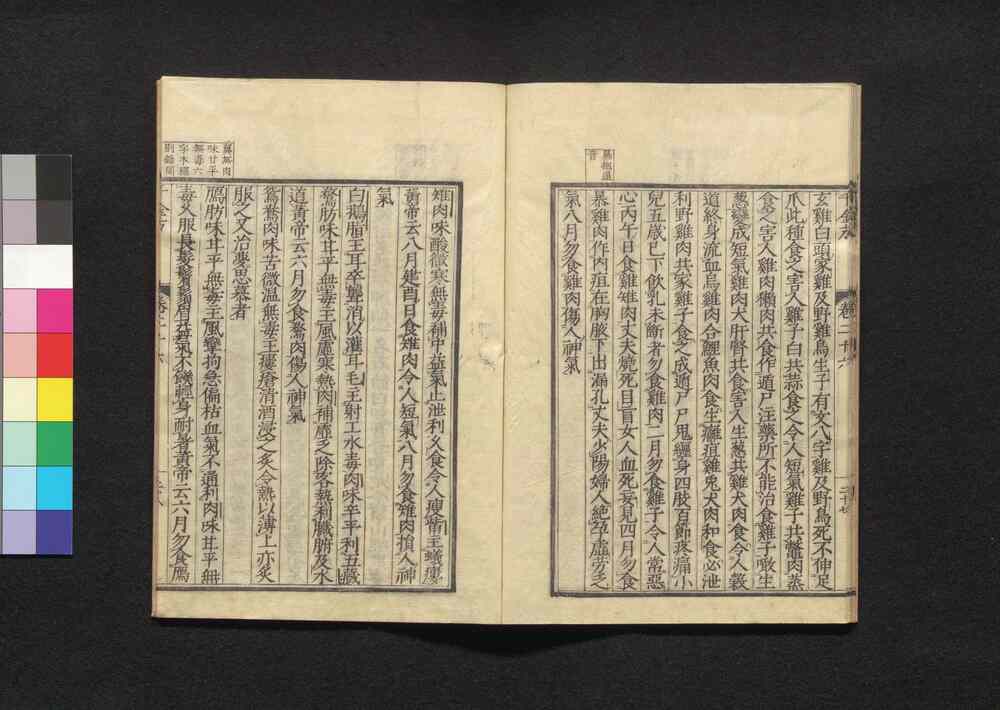 玄雞白頭家雞及野雞鳥生子有文八字雞及野鳥死不伸足
爪此種食之害人雞子白共蒜食之令人短氣雞子共鼈肉蒸
食之害人雞肉獺肉共食作遁尸注藥所不能治食雞子噉生
葱變成短氣雞肉犬肝腎共食害人生葱共雞犬肉食令人穀
道終身流血烏雞肉合鯉魚肉食生癰疽雞兎犬肉和食必泄
利野雞肉共家雞子食之成遁尸尸鬼纏身四肢百節疼痛小
兒五歲已下飲乳未斷者勿食雞肉二月勿食雞子令人常惡
心丙午日食雞雉肉丈夫燒死目盲女人血死妄見四月勿食
暴雞肉作内疽在胸腋下出漏孔丈夫少陽婦人絶孕虛勞乏
氣八月勿食雞肉傷人神氣
卷二十六
雉肉味酸微寒無毒補中益氣止泄利久食令人瘦觜主蟻瘻
黃帝云八月建酉日食雉肉令人短氣八月勿食雉肉損人神
氣
白鵝脂主耳卒聾消以灌耳毛主射工水毒肉味辛平利五藏
鶩肪味甘平無毒主風虛寒熱肉補虛乏除客熱利臟腑及水
道黃帝云六月勿食鶩肉傷人神氣
鴛鴦肉味苦微溫無毒主瘻瘡清酒浸之炙令熱以薄上亦炙
服之又治夢思慕者
鴈肪味甘平無毒主風攣拘急偏枯血氣不通利肉味甘平無
毒久服長髮鬢鬚眉益氣不飢輕身耐暑黃帝云六月勿食鴈
鴈肪肉
味甘平
無毒六
字本經